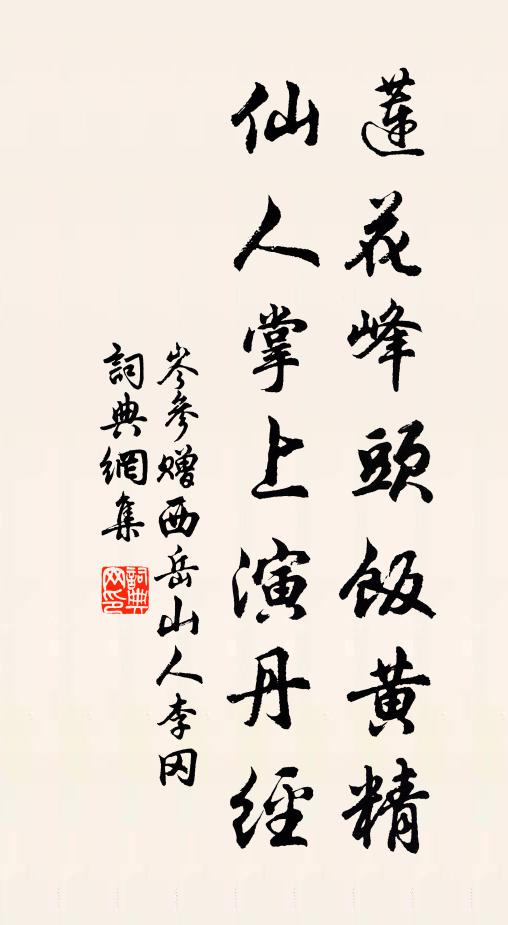 蓮花峰頭飯黃精
仙人掌上演丹經
岑參贈西岳山人李冈
詞典網集
詞典網印